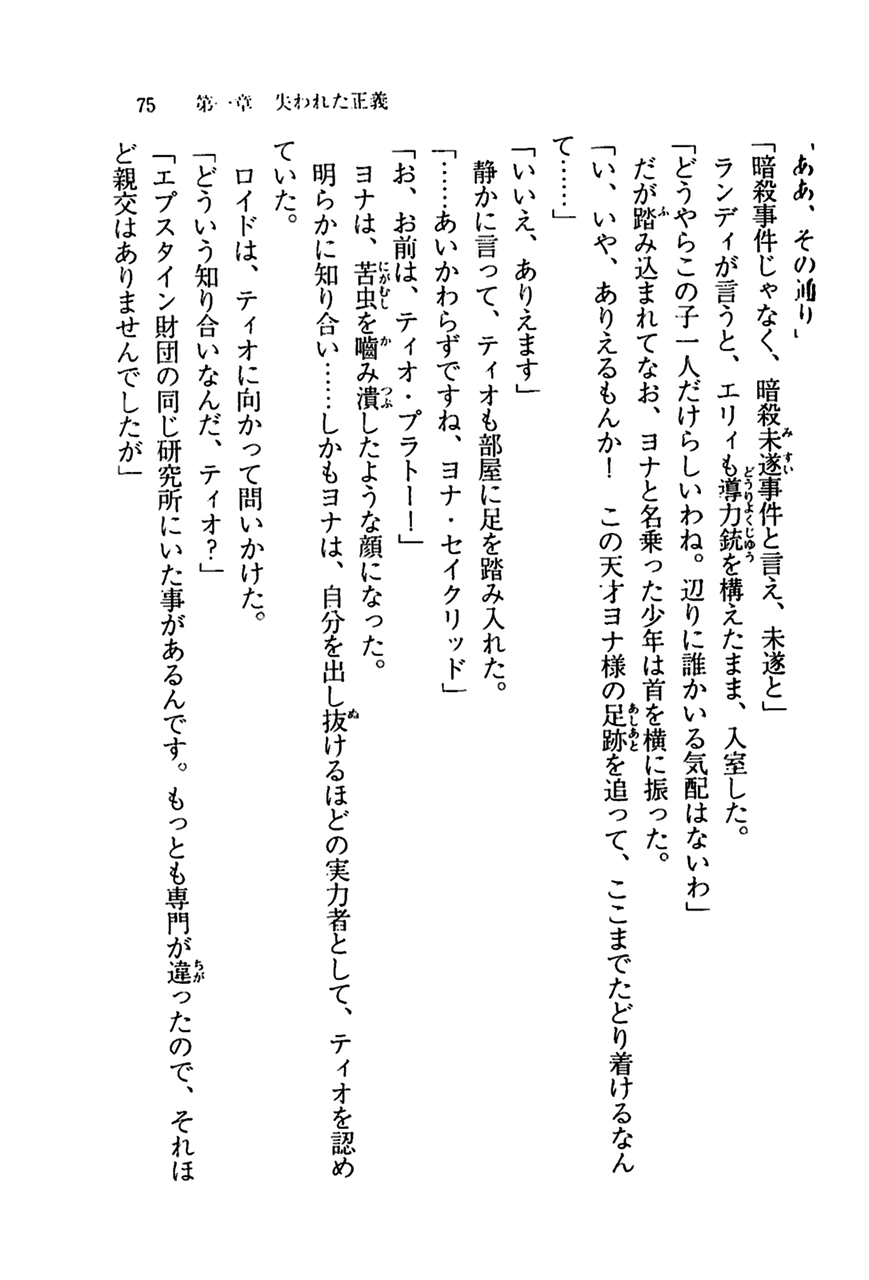 75　第一章　失われた正義
「ああ、その通り」
「暗殺事件じゃなく、暗殺未遂事件と言え、未遂と」
　ランディが言うと、エリィも導力銃を構えたまま、入室した。
「どうやらこの子一人だけらしいわね。辺りに誰かいる気配はないわ」
　だが踏み込まれてなお、ヨナと名乗った少年は首を横に振った。
「い、いや、ありえるもんか！　この天才ヨナ様の足跡を追って、ここまでたどり着けるなん
て……」
「いいえ、ありえます」
　静かに言って、ティオも部屋に足を踏み入れた。
「……あいかわらずですね、ヨナ・セイクリッド」
「お、お前は、ティオ・プラトー！」
　ヨナは、苦虫を嚙み潰したような顔になった。
　明らかに知り合い……しかもヨナは、自分を出し抜けるほどの実力者として、ティオを認め
ていた。
　ロイドは、ティオに向かって問いかけた。
「どういう知り合いなんだ、ティオ？」
「エプスタイン財団の同じ研究所にいた事があるんです。もっとも専門が違ったので、それほ
ど親交はありませんでしたが」